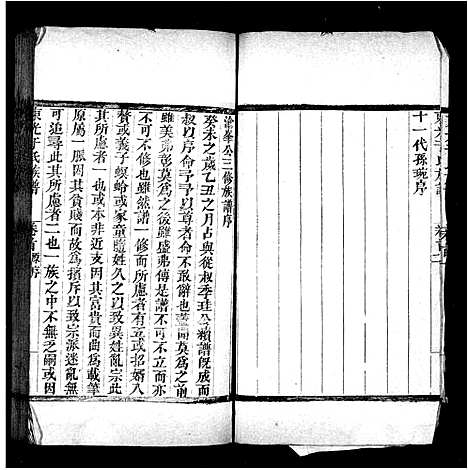 十一代孫琬序
滄峯公三修族譜序
癸未之歲乙丑之月占與從叔季珪公續譜既成而
叔以序命予予以不敢辭也予聞莫為之前
雖美弗彰莫為之後雖盛弗傳是譜不可不立而亦
不可不修也雖然譜一修而所慮者二或以招婿入
贅或義子螟蛉或家童隨姓久之以致異姓亂宗此
其所慮者一也本非近支因其富貴而曲為載筆
原屬一脈因其貧賤而故為擯斥以致宗派迷亂無
可追尋此其所慮者二也一族之中不無乏嗣或以
東光于氏族譜
卷首 源序